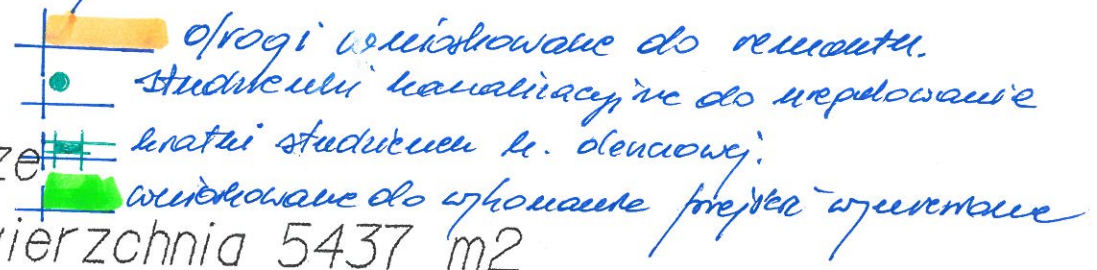 drogi wnioskowane do remontu.
studzienki kanalizacyjne do uregulowanie
kratki studzienek k. deszczowej.
ze
wnioskowane do wykonanie przejścia wyniesione
ierzchnia 5437 m2